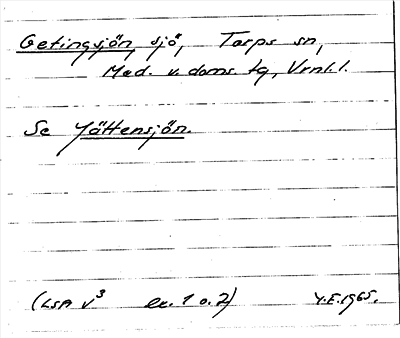 Getingsjön, sjö, Torps sn,
Med. v. doms. tg, Vrnl. l.
Se Jättensjön.
(LSA V3 ex. 1 o. 2) Y.E. 1965.